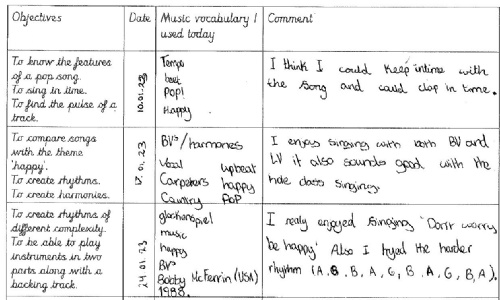 Objectives
Date
Music vocabulary I
used today
Comment
To know the features
of a pop song.
To sing in time.
To find the pulse of a
track.
10.01.23
Tempo
beat
POP!
Happy
I think I could keep intime with
the song and could clap in time.
To compare songs
with the theme
'happy'.
To create rhythms.
To create harmonies.
17.01.23
BV's/harmonies
vocal upbeat
Carpeters happy
Country POP
I enjoy singing with both BV and
LV it also sounds good with the
hole class singing.
To create rhythms of
different complexity.
To be able to play
instruments in two
parts along with a
backing track.
24.01.23
glockenspiel
music
happy
BV's
Bobby McFerrin (USA)
1988.
I realy enjoyed singing 'Don't worry
be happy' Also I tryed the harder
rhythm (A.G.B,A,G,B.A,G,B,A)